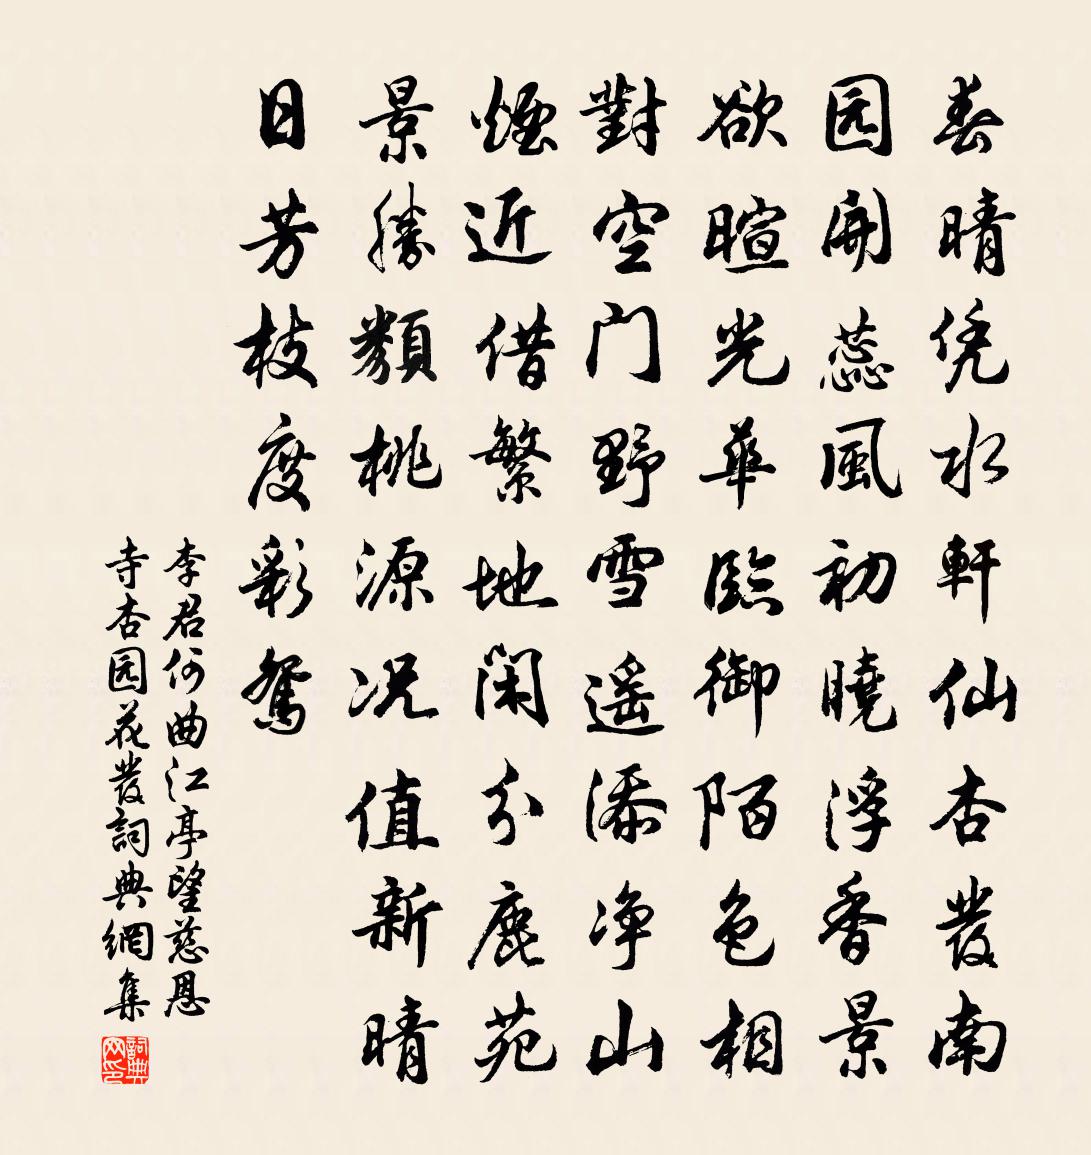 春晴凭水軒仙杏發南
园開蕊風初曉浮香景
欲暄光華臨御陌色相
對空门野雪遥添净山
煙近借繁地闲分鹿苑
景勝類桃源况值新晴
日芳枝度彩鴛
李君何曲江亭望慈恩
寺杏园花發詞典網集
詞典网印